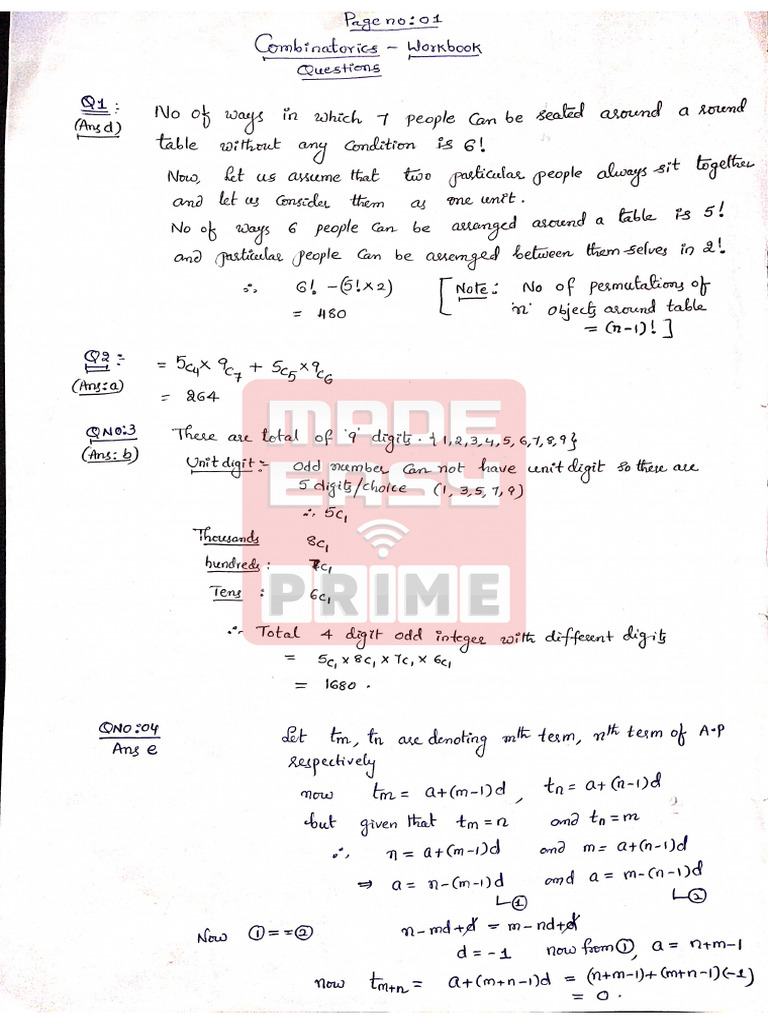 Page no: 01
Combinatorics - Workbook
Questions
Q1:
(Ans d)
No of ways in which 7 people can be seated around a round
table without any condition is 6!
Now, let us assume that two particular people always sit together
and let us consider them as one unit.
No of ways 6 people can be arranged around a table is 5!
and particular people can be arrenged between them selves in 2!
∴ 6! - (5! × 2)
= 480
[Note: No of permutations of
'n' objects around table
= (n-1)! ]
Q2:-
(Ans: a)
= 5C4 × 9C7 + 5C5 × 9C6
= 264
QNO:3
(Ans: b)
There are total of '9' digits. {1,2,3,4,5,6,7,8,9}
Unit digit:- Odd number can not have unit digit so there are
5 digits/choice (1, 3, 5, 7, 9)
∴ 5C1
Thousands 8C1
hundreds: 7C1
Tens : 6C1
∴ Total 4 digit odd integer with different digits
= 5C1 × 8C1 × 7C1 × 6C1
= 1680.
QNO:04
Ans e
Let tm, tn are denoting mth term, nth term of A.P
respectively
now tm = a+(m-1)d, tn = a+(n-1)d
but given that tm = n and tn = m
∴ n = a+(m-1)d and m = a+(n-1)d
⇒ a = n-(m-1)d and a = m-(n-1)d
①
②
Now ① = = ② n-md+d = m-nd+d
d = -1 now from ①, a = n+m-1
now tm+n = a+(m+n-1)d = (n+m-1)+(m+n-1)(-1)
= 0.
MADE
EASY
PRIME